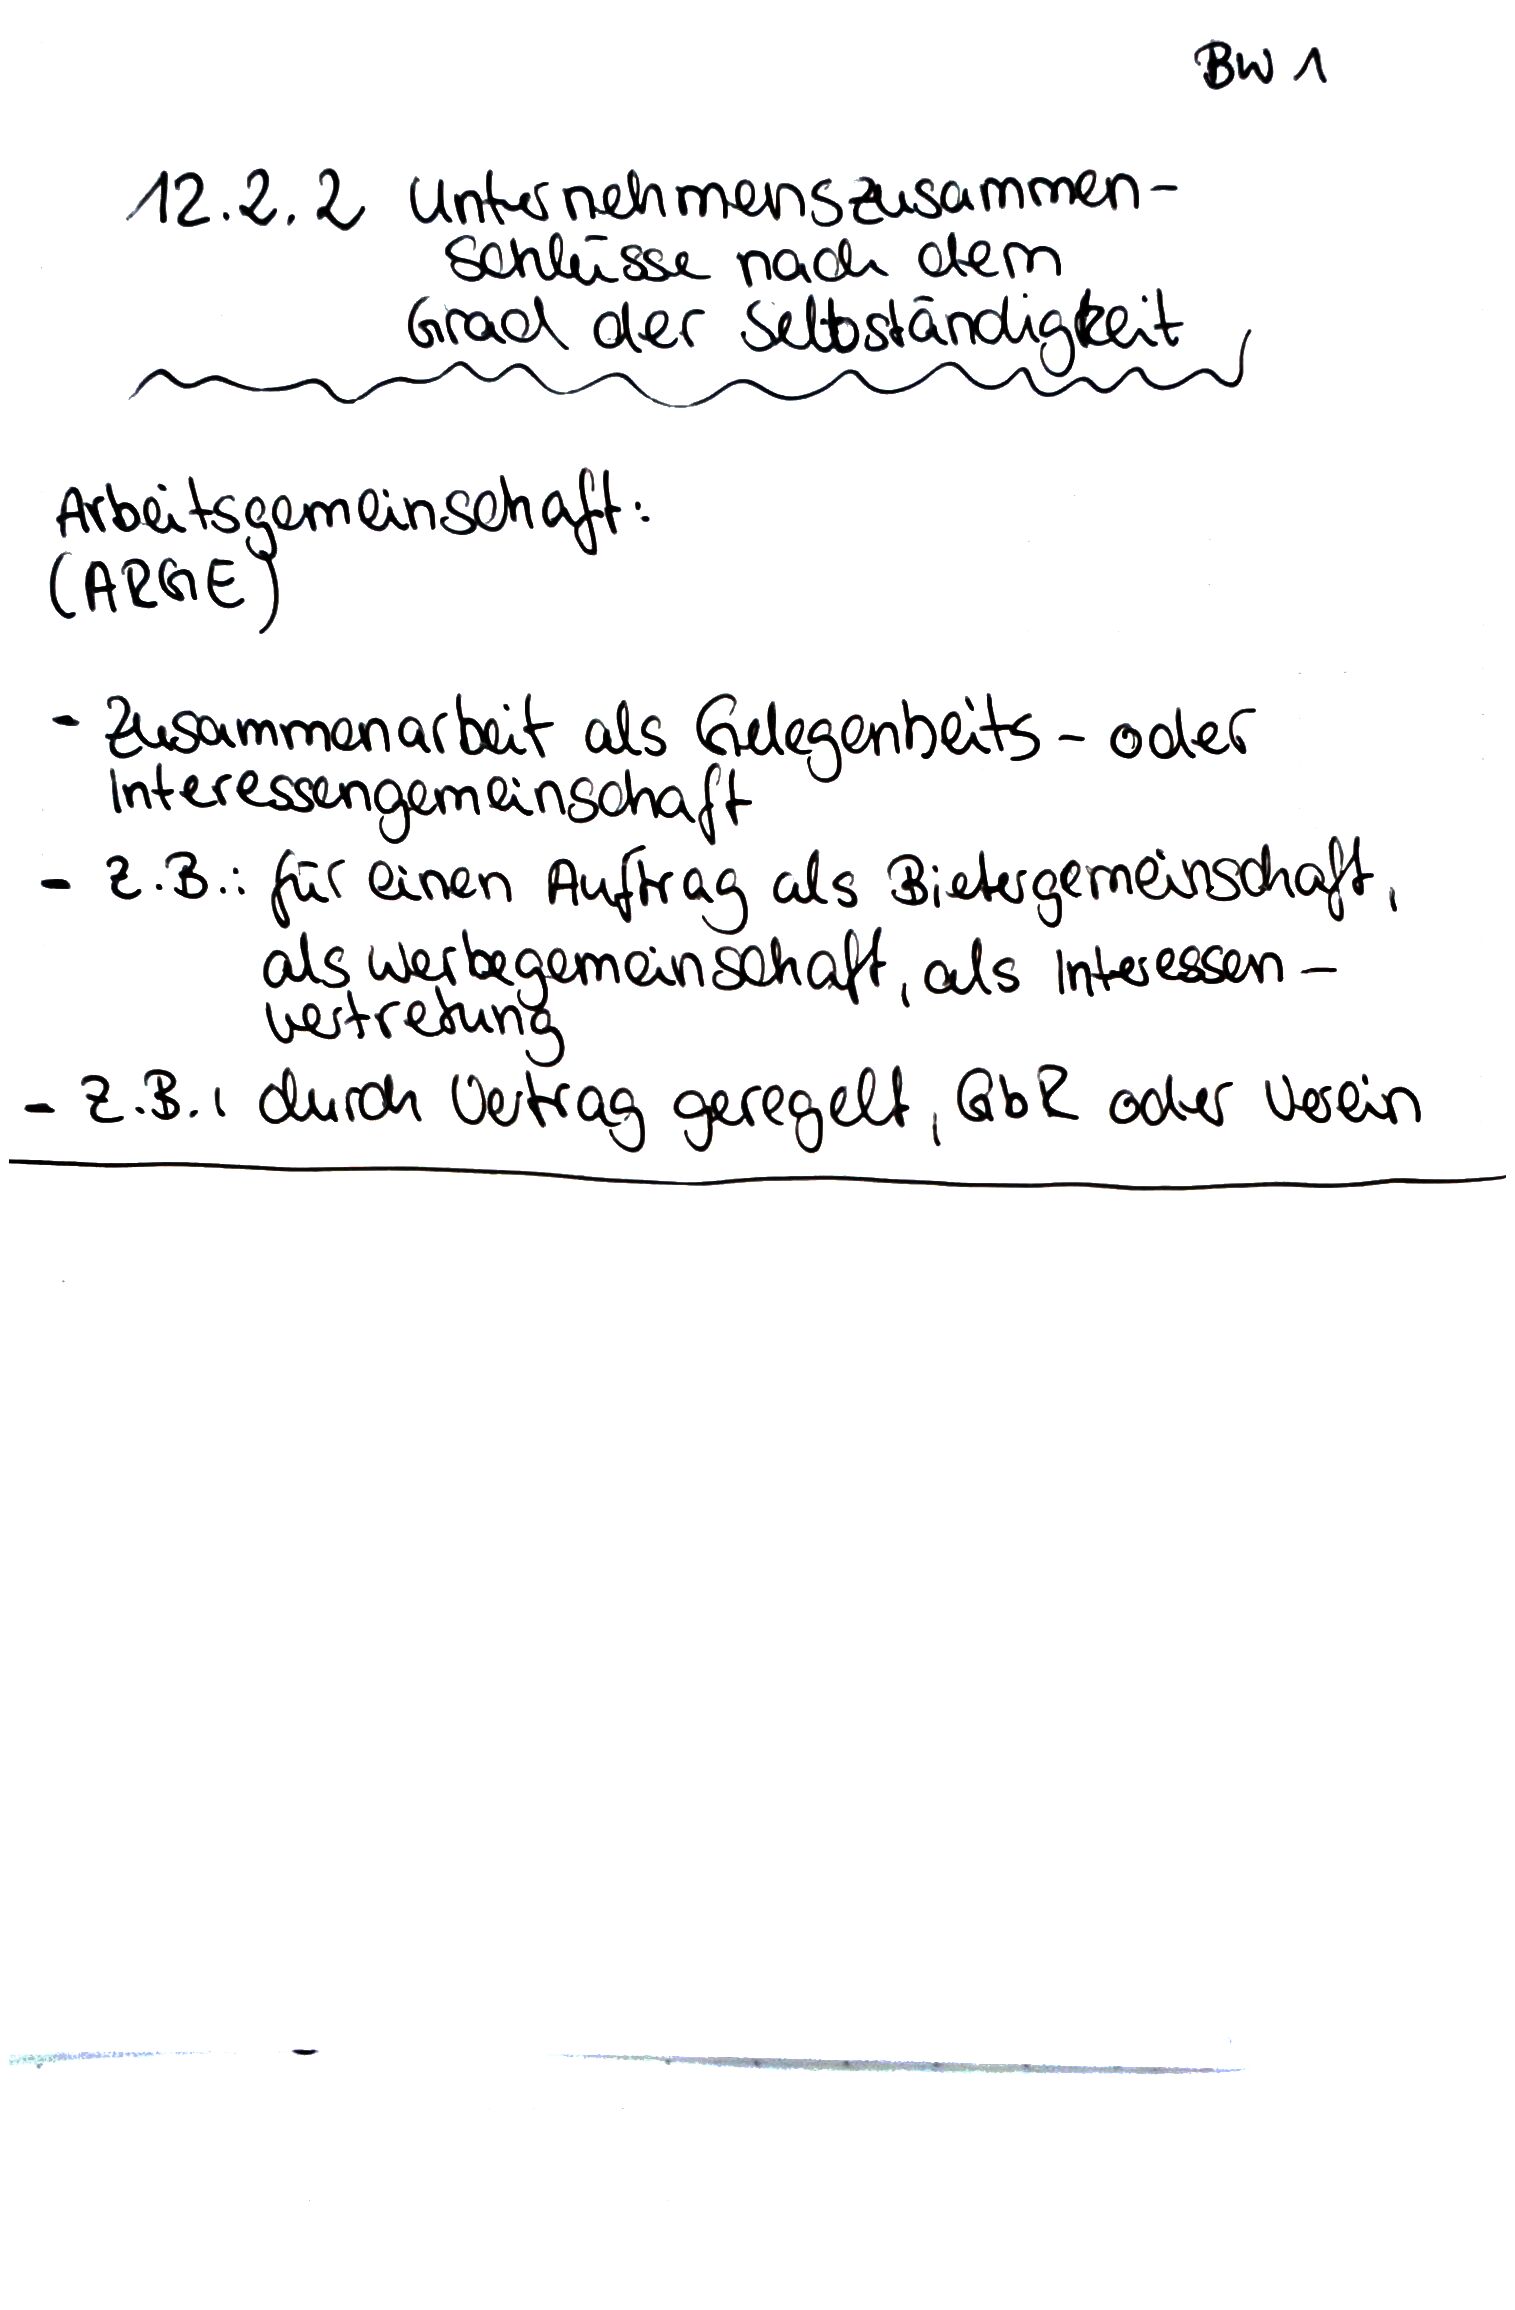 BW 1
12.2.2 Unternehmenszusammen-
schlüsse nach dem
Grad der Selbständigkeit
Arbeitsgemeinschaft:
(ARGE)
- Zusammenarbeit als Gelegenheits- oder
Interessengemeinschaft
- z.B.: für einen Auftrag als Bietergemeinschaft,
als Werbegemeinschaft, als Interessen-
vertretung
- z.B.: durch Vertrag geregelt, GbR oder Verein